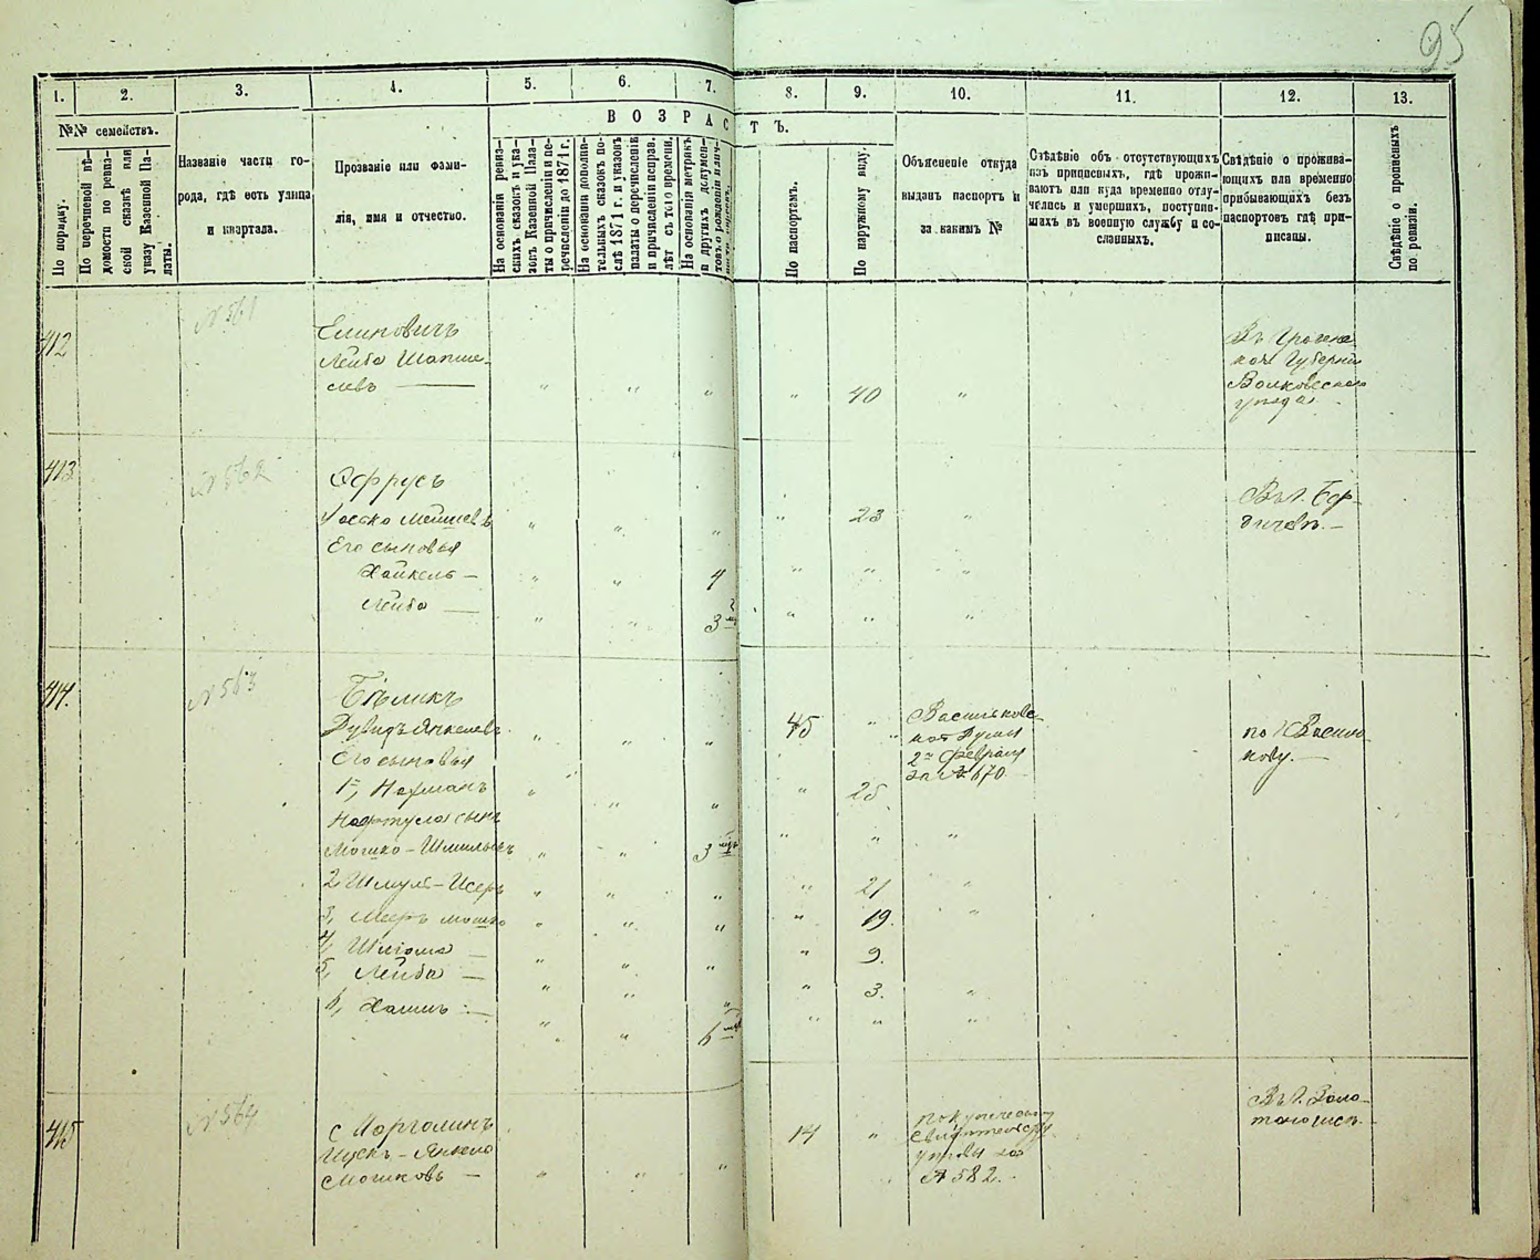 95
1. 2. 3. 4. 5. 6. 7. 8. 9. 10. 11. 12. 13.
№№ семействъ.
По порядку.
По перечневой вѣ-
домости по ревиз-
ской сказкѣ или
указу Казенной Па-
латы.
Названіе части го-
рода, гдѣ есть улица
и квартала.
Прозваніе или фами-
лія, имя и отчество.
ВОЗРАСТЪ.
На основаніи ревиз-
скихъ сказокъ и ука-
зовъ Казенной Пала-
ты о причисленіи и пе-
речисленіи до 1871 г.
На основаніи дополни-
тельныхъ сказокъ по-
слѣ 1871 г. и указовъ
палаты о перечисленіи
и причисленіи исправ.
лѣт съ того времени.
На основаніи метрикъ
и другихъ докумен-
товъ о рожденіи и лич-
По паспортамъ.
По наружному виду.
Объясненіе откуда
выданъ паспортъ и
за какимъ №
Свѣдѣніе объ отсутствующихъ
изъ приписныхъ, гдѣ прожи-
ваютъ или куда временно отлу-
чились и умершихъ, поступив-
шихъ въ военную службу и со-
сланныхъ.
Свѣдѣніе о прожива-
ющихъ или временно
прибывающихъ безъ
паспортовъ гдѣ при-
писаны.
Свѣдѣніе о прописныхъ
по ревизіи.
412
№ 561
Лейба Шапше-
левъ
40
Въ Гродне
кой Губерніи
Волковскаго
уѣзда
413
№ 562
Офрусъ
Іосько
23
Въ г. Бер-
дичевѣ.
Его сыновья
Хайкель 4
Лейба 3
414.
№ 563
Бѣликъ
Дувидъ Янкелевъ
45
Васильковс-
кой Думы
2го февраля
за № 670
по г. Василь-
кову.
Его сыновья
1, Нахманъ 25
Нафтула сынъ
Мошко-Шмилько 3
2, Шмуль-Исеръ 21
3, Мееръ Мошко 19.
4, Шлёма 9.
5, Лейба 3.
6, Хаимъ 6
415
№ 564
Морголинъ
Ицекъ-Янкель
Мошковъ
14
свидѣтельству
управы за
№ 582.
Въ г. Золо-
тоношѣ.